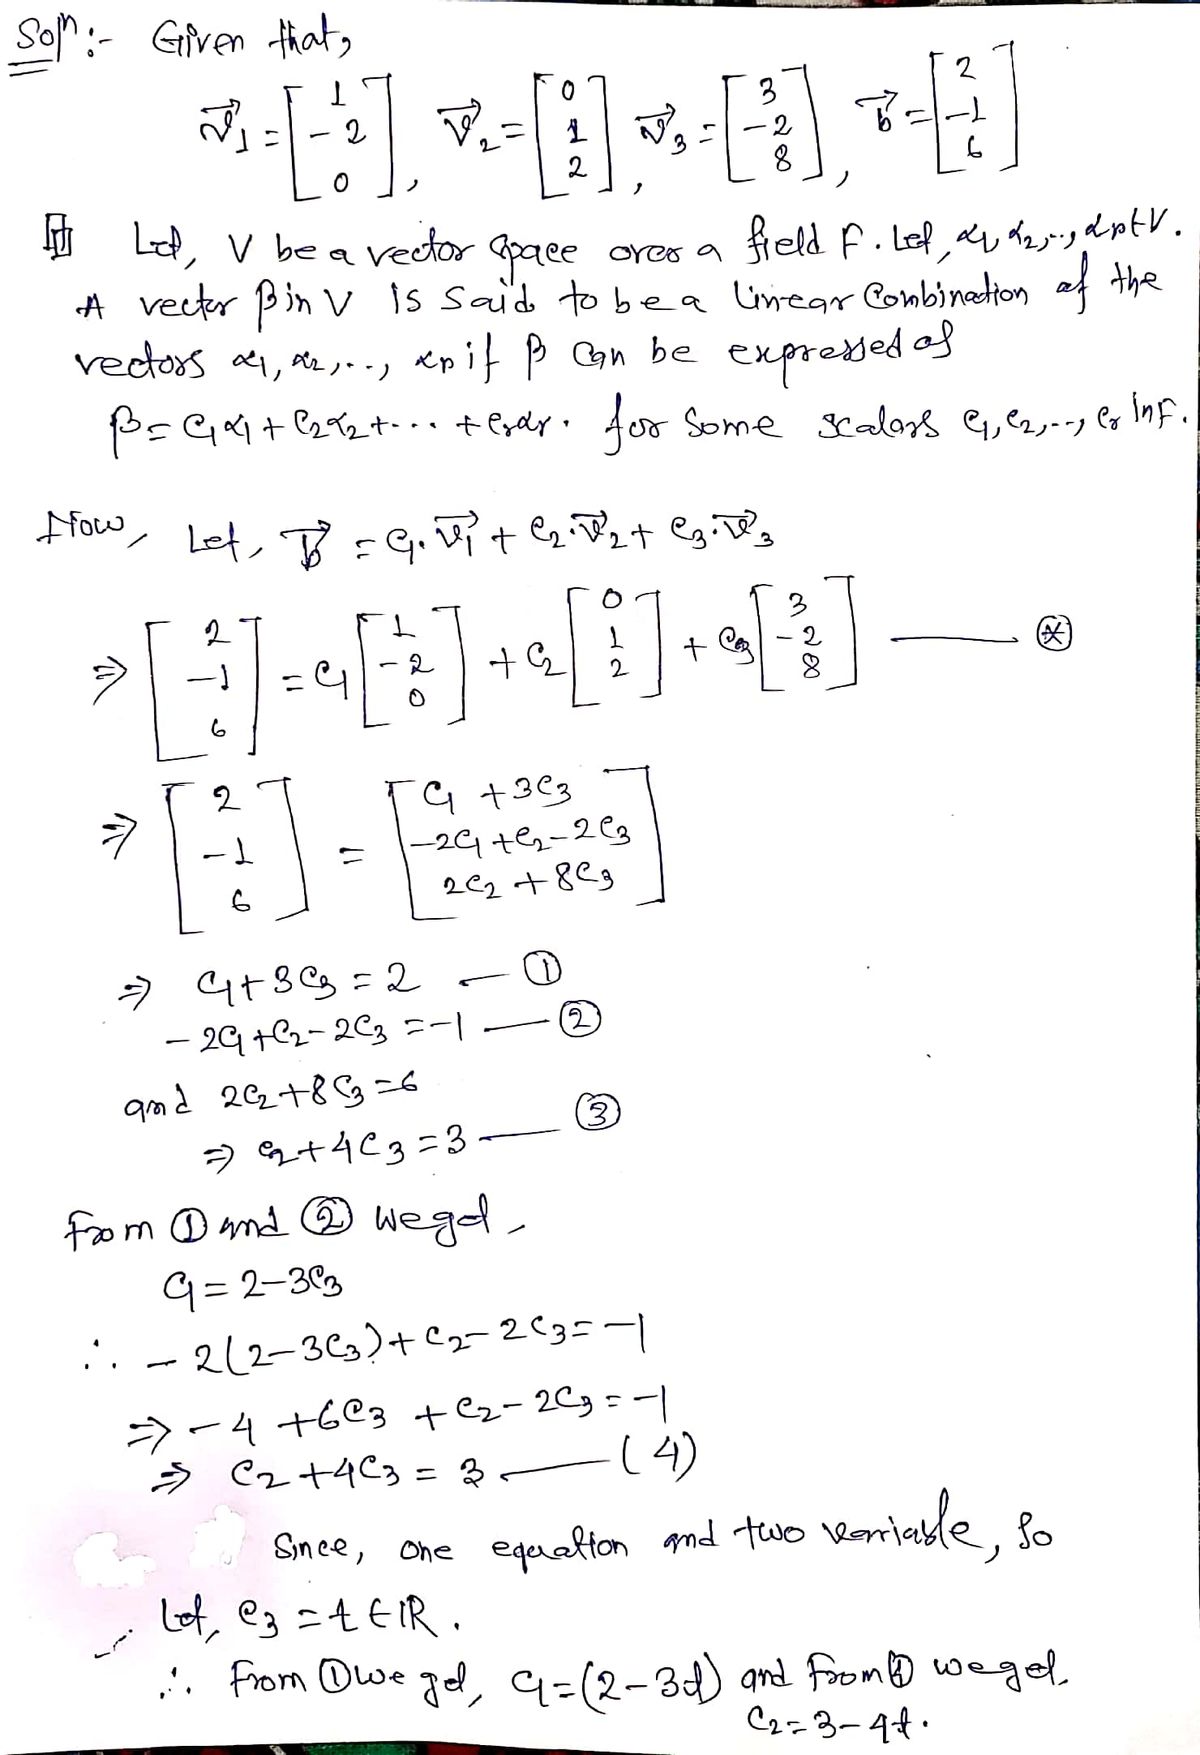 Solⁿ:- Given that,
v⃗₁ = [1 -2 0], v⃗₂ = [0 1 2], v⃗₃ = [3 -2 8], b⃗ = [2 -1 6]
Let, V be a vector space over a field F. Let, α₁, α₂,..., αr ∈ V.
A vector β in V is said to be a linear Combination of the
vectors α₁, α₂,.., αr if β can be expressed as
β = c₁α₁ + c₂α₂ + ... + crαr. for some scalars c₁, c₂,.., cr in F.
Now, Let, b⃗ = c₁.v⃗₁ + c₂.v⃗₂ + c₃.v⃗₃
⇒ [2 -1 6] = c₁[1 -2 0] + c₂[0 1 2] + c₃[3 -2 8] — ⊛
⇒ [2 -1 6] = [c₁ + 3c₃ -2c₁ + c₂ - 2c₃ 2c₂ + 8c₃]
⇒ c₁ + 3c₃ = 2 — ①
-2c₁ + c₂ - 2c₃ = -1 — ②
and 2c₂ + 8c₃ = 6
⇒ c₂ + 4c₃ = 3 — ③
From ① and ② we get,
c₁ = 2-3c₃
∴ -2(2-3c₃) + c₂ - 2c₃ = -1
⇒ -4 + 6c₃ + c₂ - 2c₃ = -1
⇒ c₂ + 4c₃ = 3 — (4)
Since, one equation and two variable, so
Let, c₃ = t ∈ ℝ.
∴ From ① we get, c₁ = (2-3t) and From ④ we get,
c₂ = 3-4t.